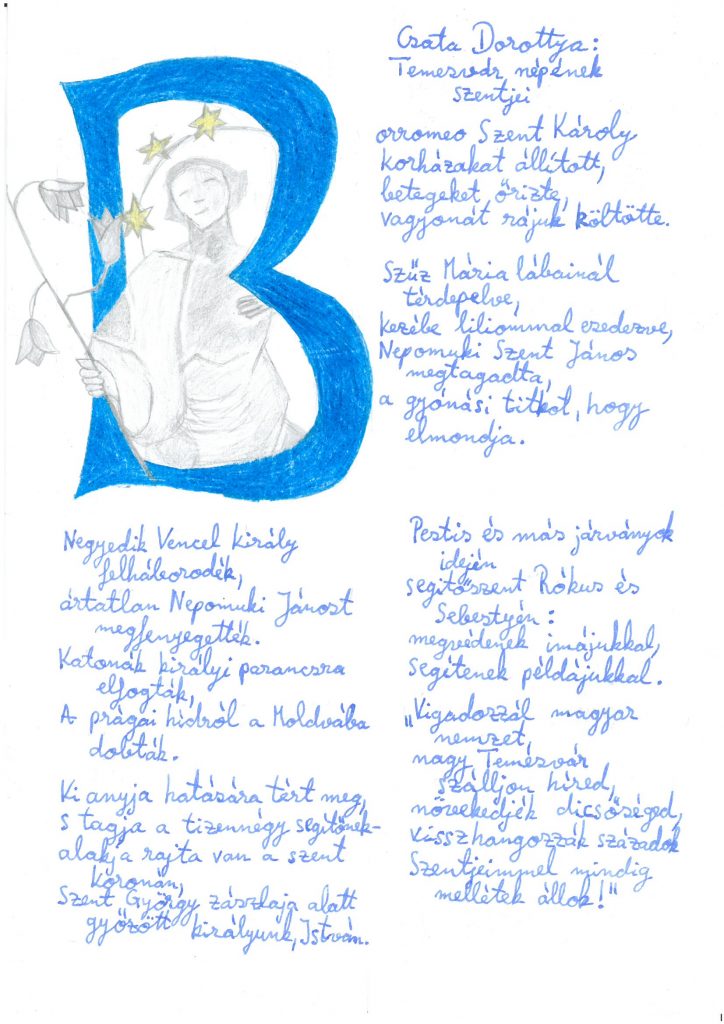 Csata Dorottya:
Temesvár népének
szentjei
B
orromeo Szent Károly
korházakat állított,
betegeket őrizte,
vagyonát rájuk költötte.
Szűz Mária lábainál
térdepelve,
kezébe liliommal esedezve,
Nepomuki Szent János
megtagadta,
a gyónási titkot, hogy
elmondja.
Negyedik Vencel király
felháborodék,
ártatlan Nepomuki Jánost
megfenyegették.
Katonák királyi parancsra
elfogták,
A prágai hídról a Moldvába
dobták.
Ki anyja hatására tért meg,
s tagja a tizennégy segítőnek-
alakja rajta van a szent
koronán,
Szent György zászlaja alatt
győzött királyunk, István.
Pestis és más járványok
idején
segítőszent Rókus és
Sebestyén:
megvédenek imájukkal,
segítenek példájukkal.
„Vigadozzál magyar
nemzet,
nagy Temesvár
szálljon híred,
növekedjék dicsőséged,
visszhangozzák századok
Szentjeimmel mindig
mellétek állok!"